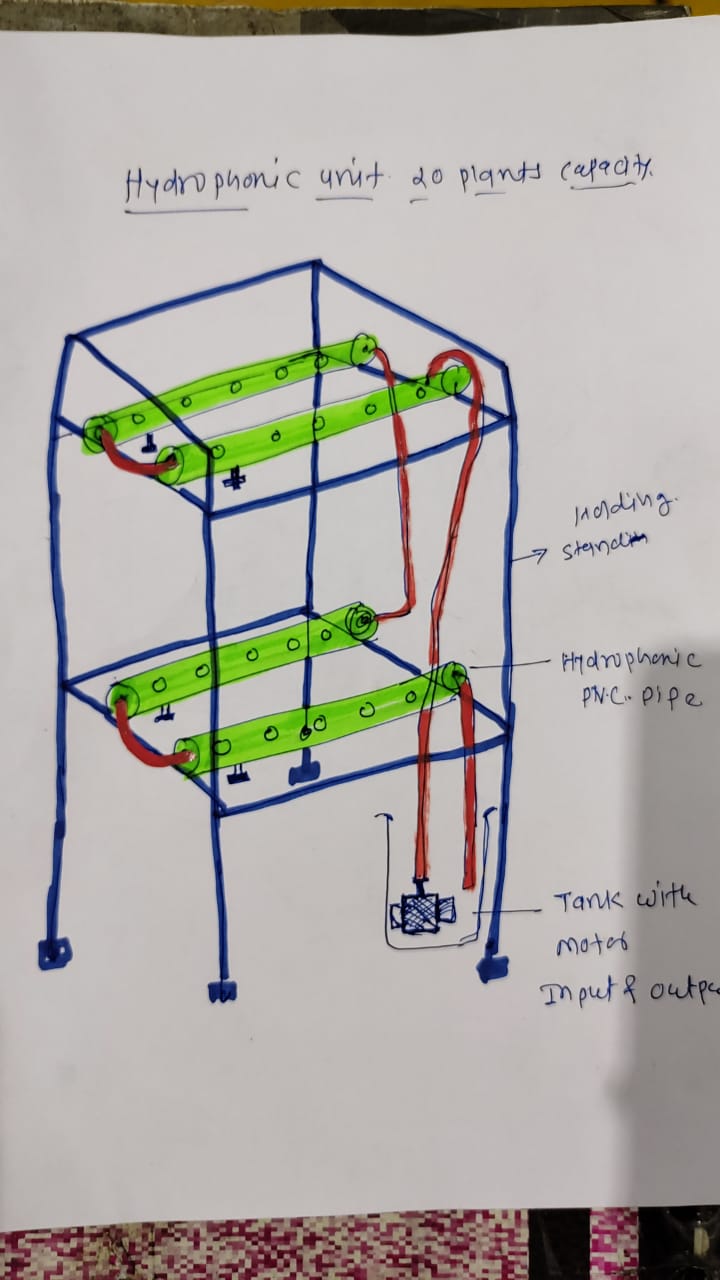 Hydrophonic unit 20 plants capacity.
Holding
stand
Hydrophonic
P.V.C. Pipe
Tank with
motor
Input & outpu